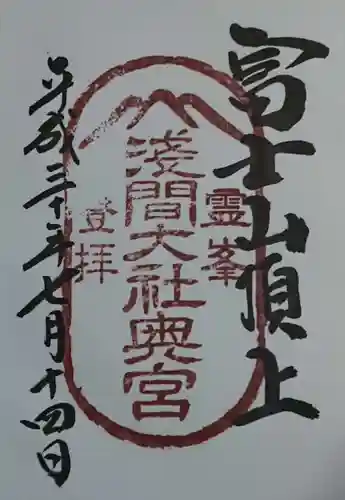 富士山頂上
霊峯
淺間大社奥宮
登拝
平成三十年七月十四日